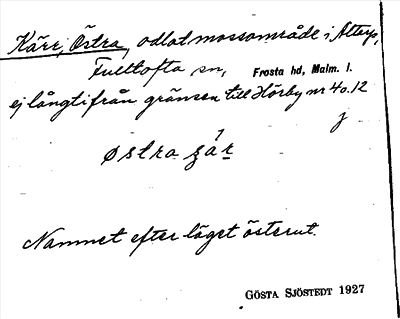 Kärr, Östra, odlat mossområde i Alterp,
Fulltofta sn, Frosta hd, Malm. l.
ej långt ifrån gränsen till Hörby nr 40.12
östra
Namnet efter läget österut.
GÖSTA SJÖSTEDT 1927